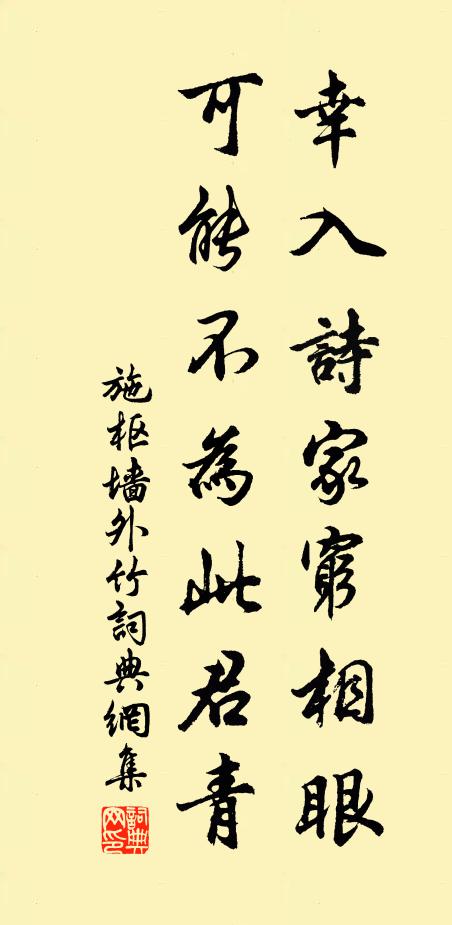 幸入詩家窮相眼
可能不為此君青
施枢墙外竹詞典網集
詞典網印